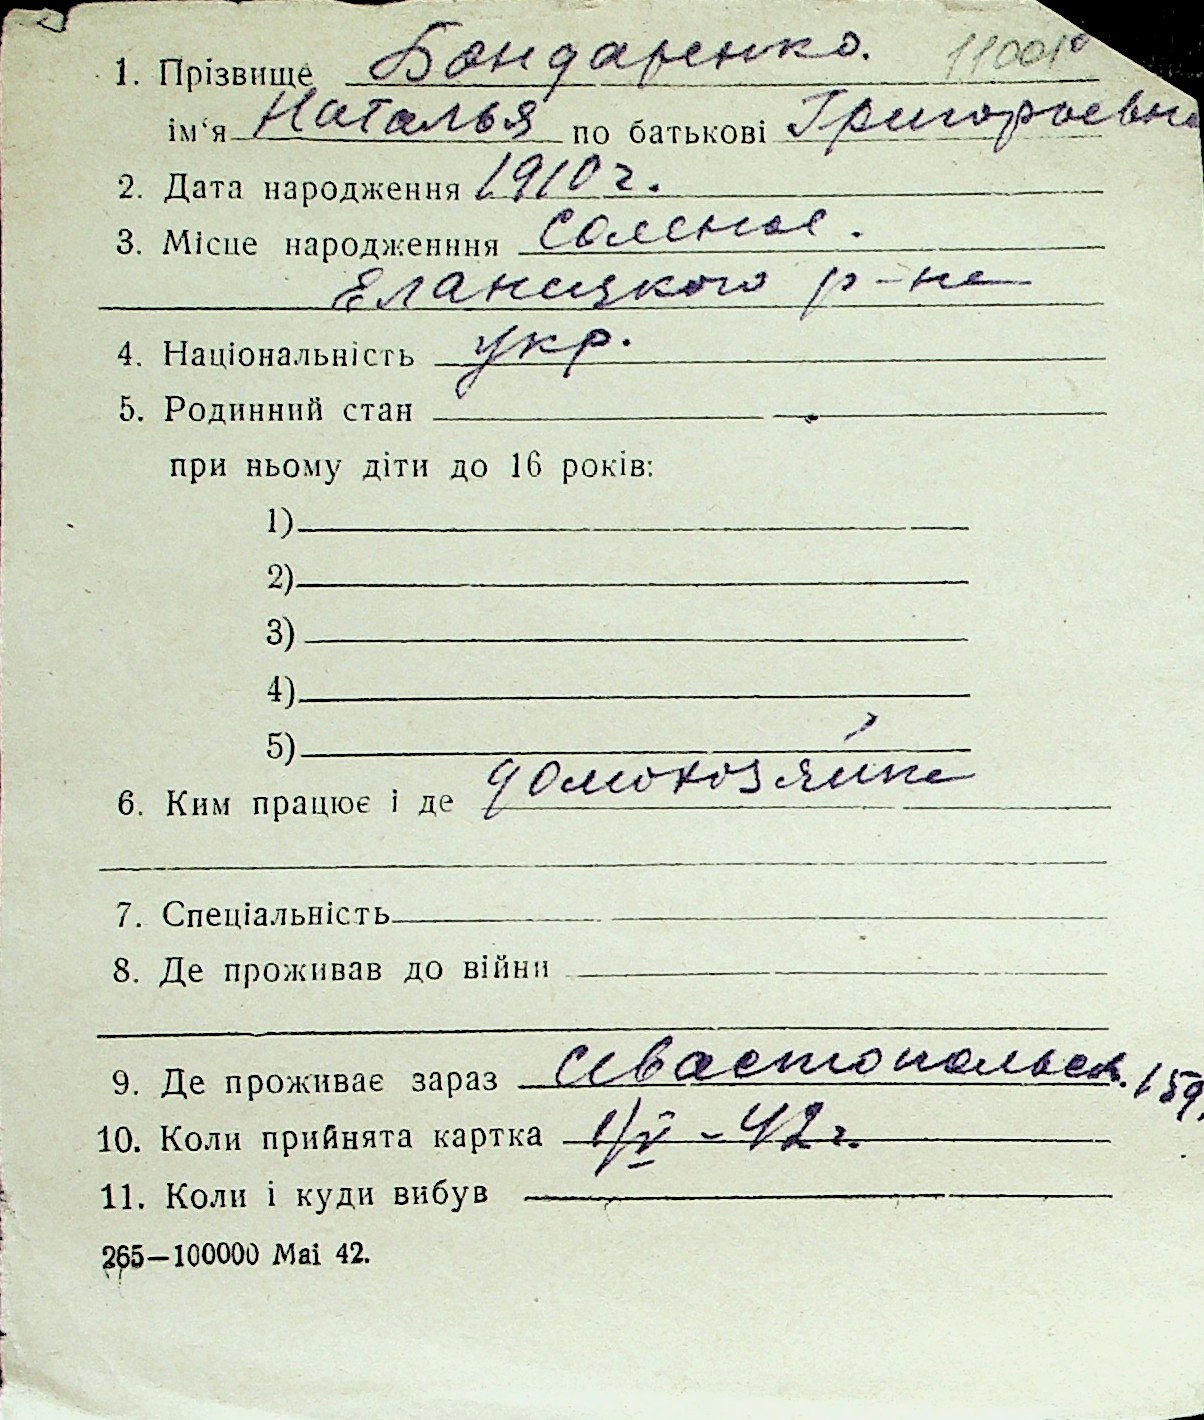 1. Прізвище Бондаренко. 11001
ім'я Наталья по батькові Григорьевна
2. Дата народження 1910 г.
3. Місце народженння Соленое.
Еланецкого р-на
4. Національність укр.
5. Родинний стан
при ньому діти до 16 років:
1)
2)
3)
4)
5)
6. Ким працює і де домохозяйка
7. Спеціальність
8. Де проживав до війни
9. Де проживає зараз Севастопольск. 159
10. Коли прийнята картка 1/V - 42 г.
11. Коли і куди вибув
265—100000 Mai 42.